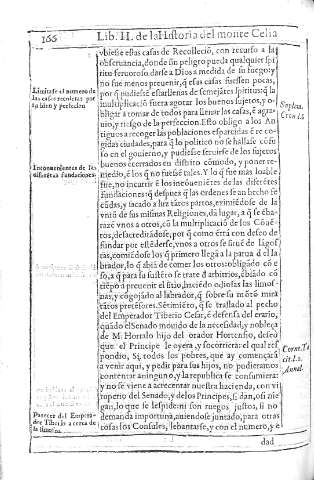 166
Lib. II. de la Historia del monte Celia
vbiesse essas casas de Recolecció, con recurso a la
obseruancia, donde sin peligro pueda qualquier spi
ritu feruoroso darse a Dios a medida de su fuego: y
no fue menos preuenir, q̃ essas casas fuessen pocas,
por q̃ nudiesse
multiplicació fuera agotar los buenos sujetos, y o-
bligar a tomar de todos para llenar las casas, é agra-
uio, y riesgo de la perfeccion. Esto obligo a los An
tiguos a recoger las poblaciones esparcidas é re co-
gidas ciudades, para q̃ lo politico no se hallasse cófu
so en el gouierno, y pudiesse seruirse de los sujetos
buenos écerrados en distrito cómodo, y poner re-
medio, é los q̃ no fuesse tales. Y lo q̃ fue mas loable
fue, no incurrir é los incóuenietes de las diferétes
fundaciones: q̃ despues q̃ las ordenes se an hecho se
cúdas, y sacado a luz tátos partos, eximiédose de la
vnió de sus mismas Religiones, dá lugar, a q̃ se eba-
razé vnos a otros, có la multiplicació de los Cóué-
tos, desacredirádose, por q̃ como éttá con desseo de
fundar por estéderse, vnos a otros se siruẽ de lágos
tas, comiédose los q̃ primero llegá a la parua d el la
brador, lo q̃ abiá de comer los otros obligádo có e
so, a q̃ para su sustéto se trate d arbitrios, ébiádo có
tiépo a preuenir el sitio, haciédo odiosas las limos-
nas, y cógojado al labrador, q̃ sobre su móte mira
tátos pretésores. Setimiéto, q̃ se traslado al pecho
del Emperador Tiberio Cesar, é defensa del erario,
quádo el Senado mouido de la necesidad, y nobleça
de M. Hortalo hijo del orador Hortensio, desseó
que el Principe le oyera, y socorriera: el qual res
pondio, Si, todos los pobres, que ay començara
a venir aqui, y pedir para sus hijos, no pudieramos
contentar a ninguno, y la republica se consumiera:
y no se viene a acrecentar nuestra hacienda, con vi
tuperio del Senado, y de los Principes, si dan, o si nie
gan, lo que se les pide: ni son ruegos justos, si no
demanda importuna, auiendose juntado, para otras
cosas los Consules, lebantarse, y con el numero, y e
dad
Limitase el numero de
las casas recoletas por
su bien y perfeccion.
Inconuenientes de las
diferétes fundaciones.
Parecer del Empera-
dor Tiberio a cerca de
la limosna.
Corne. Ta
cit. l. 2.
Annal.